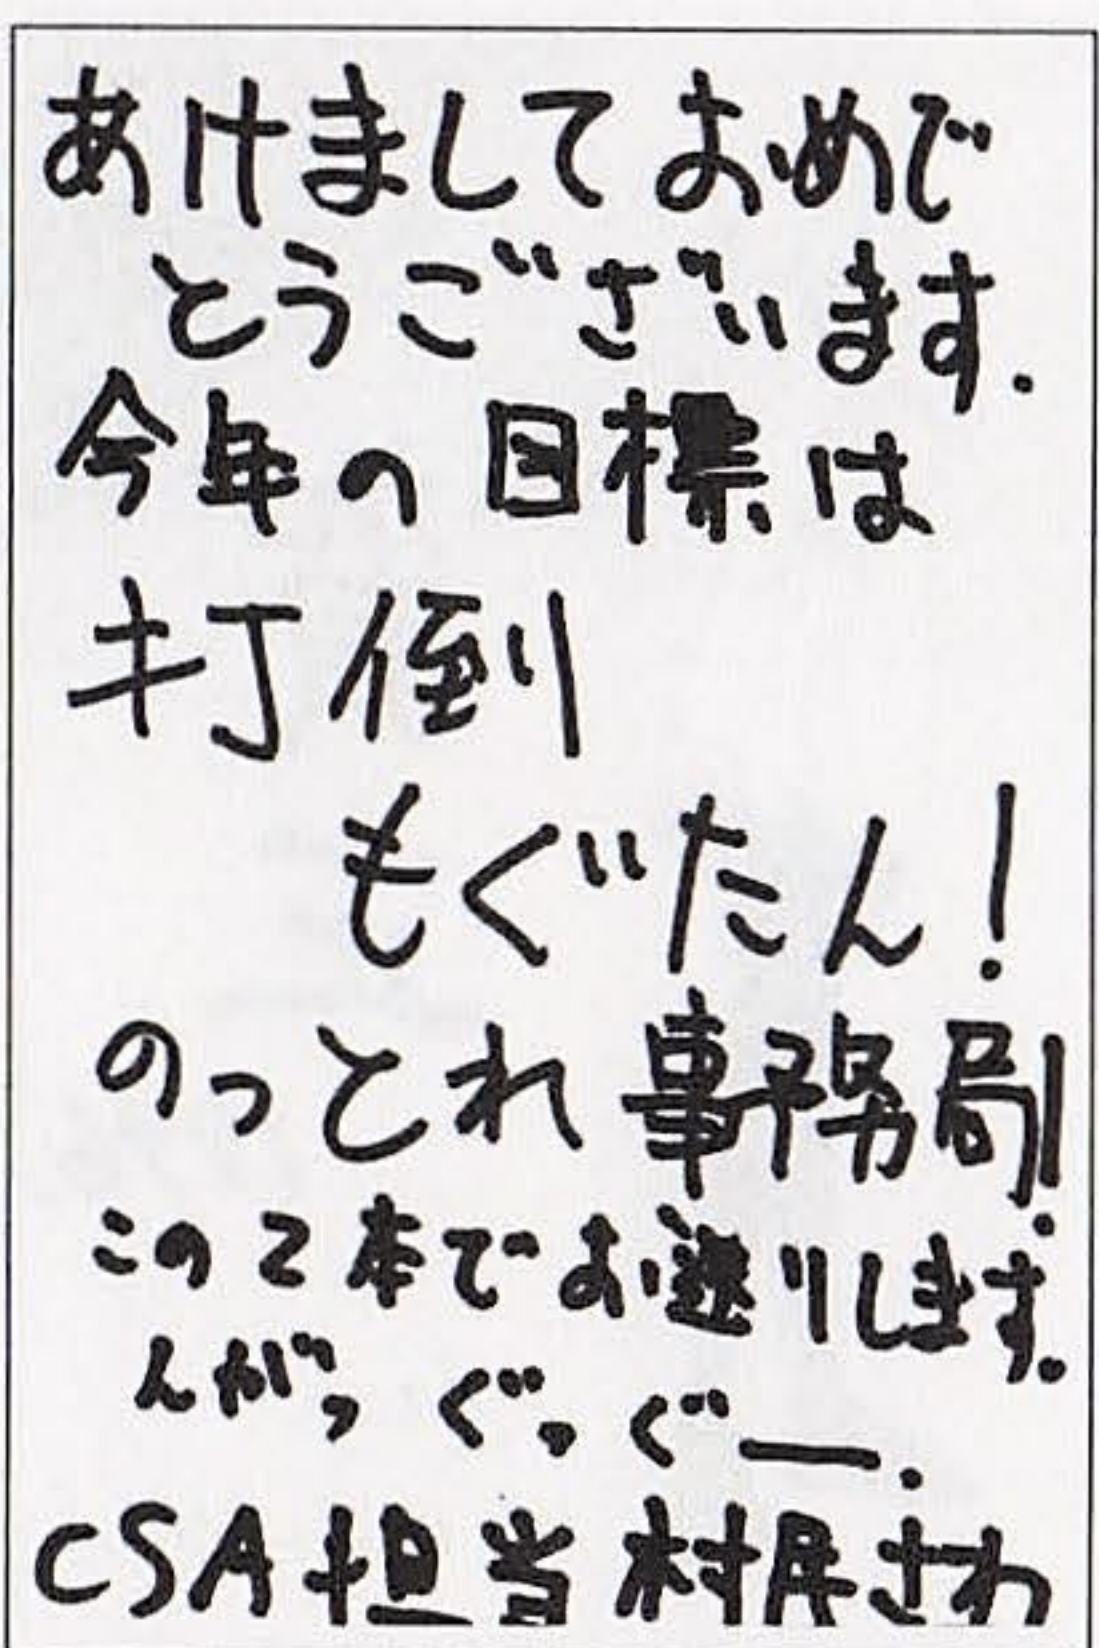 あけましておめで
とうございます.
今年の目標は
打倒
もぐたん!
のっとれ事務局!
この2本でお送りします。
んがっぐっぐー.
CSA担当 村長さわ